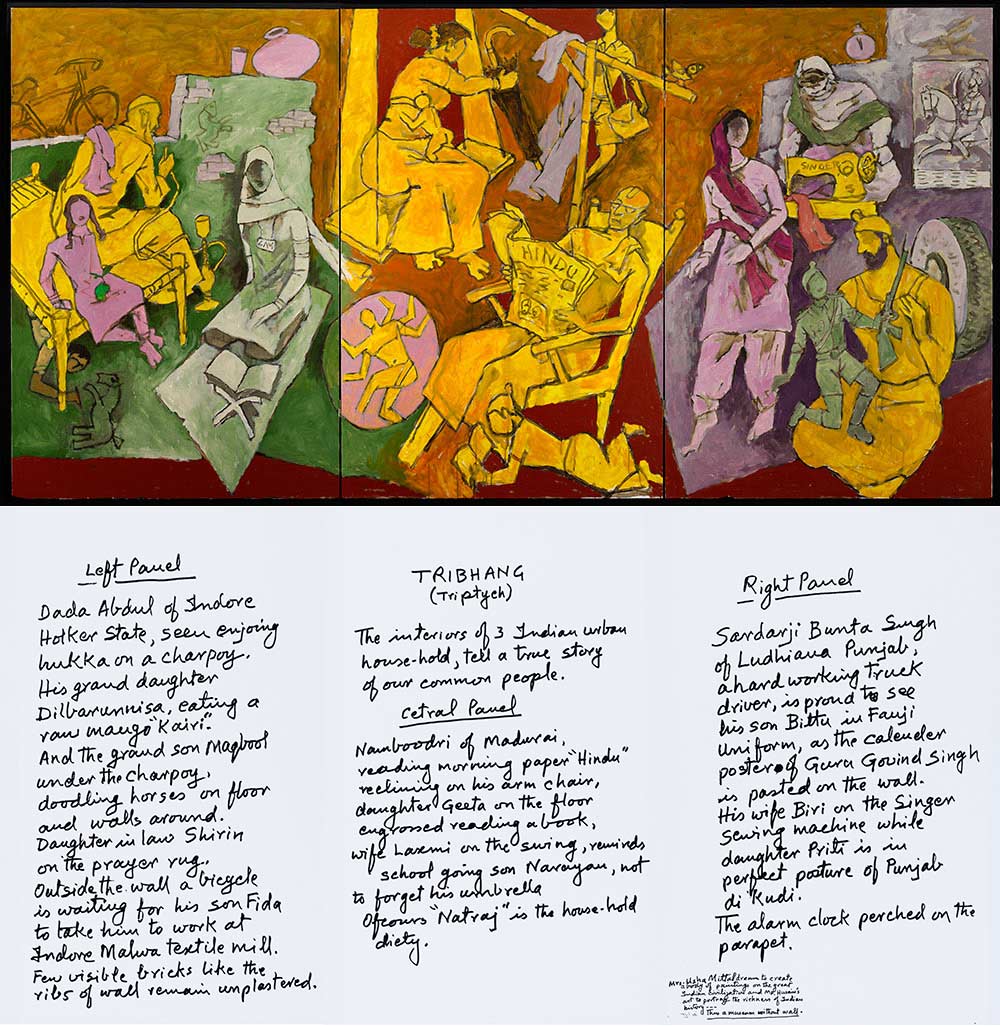 HINDU
SINGER
Left Panel
Dada Abdul of Indore
Holker State, seen enjoing
hukka on a charpoy.
His grand daughter
Dilbarunnisa, eating a
raw mango "Kairi".
And the grand son Maqbool
under the charpoy,
doodling horses on floor
and walls around.
Daughter in law Shirin
on the prayer rug.
Outside the wall a bicycle
is waiting for his son Fida
to take him to work at
Indore Malwa textile mill.
Few visible bricks like the
ribs of wall remain unplastered.
TRIBHANG
(Triptych)
The interiors of 3 Indian urban
house-hold, tell a true story
of our common people.
Cetral Panel
Namboodri of Madurai,
reading morning paper "Hindu"
reclining on his arm chair,
daughter Geeta on the floor
engrossed reading a book,
wife Laxmi on the swing, reminds
school going son Narayan, not
to forget his umbrella
Ofcours "Natraj" is the house-hold
diety.
Right Panel
Sardarji Bunta Singh
of Ludhiana Punjab,
a hard working truck
driver, is proud to see
his son Bittu in Fauji
uniform, as the calender
poster of Guru Govind Singh
is pasted on the wall.
His wife Biri on the Singer
sewing machine while
daughter Priti is in
perfect posture of Punjab
di Kudi.
The alarm clock perched on the
parapet.
Mrs. Usha Mittal dream to create
a body of paintings on the great
Indian Civilization and Mr. Husain's
art to portray the richness of Indian
history ---
Thus a museum without wall.